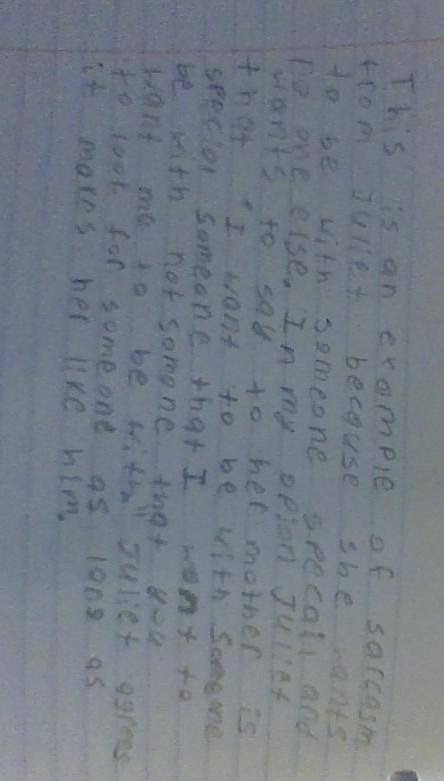 This is an example of sarcasm
from Juliet because she wants
to be with someone specail and
no one else. In my opion Juliet
wants to say to her mother is
that "I want to be with someone
special someone that I want to
be with not somone that you
want me to be with." Juliet agrees
to look for someone as long as
it makes her like him.